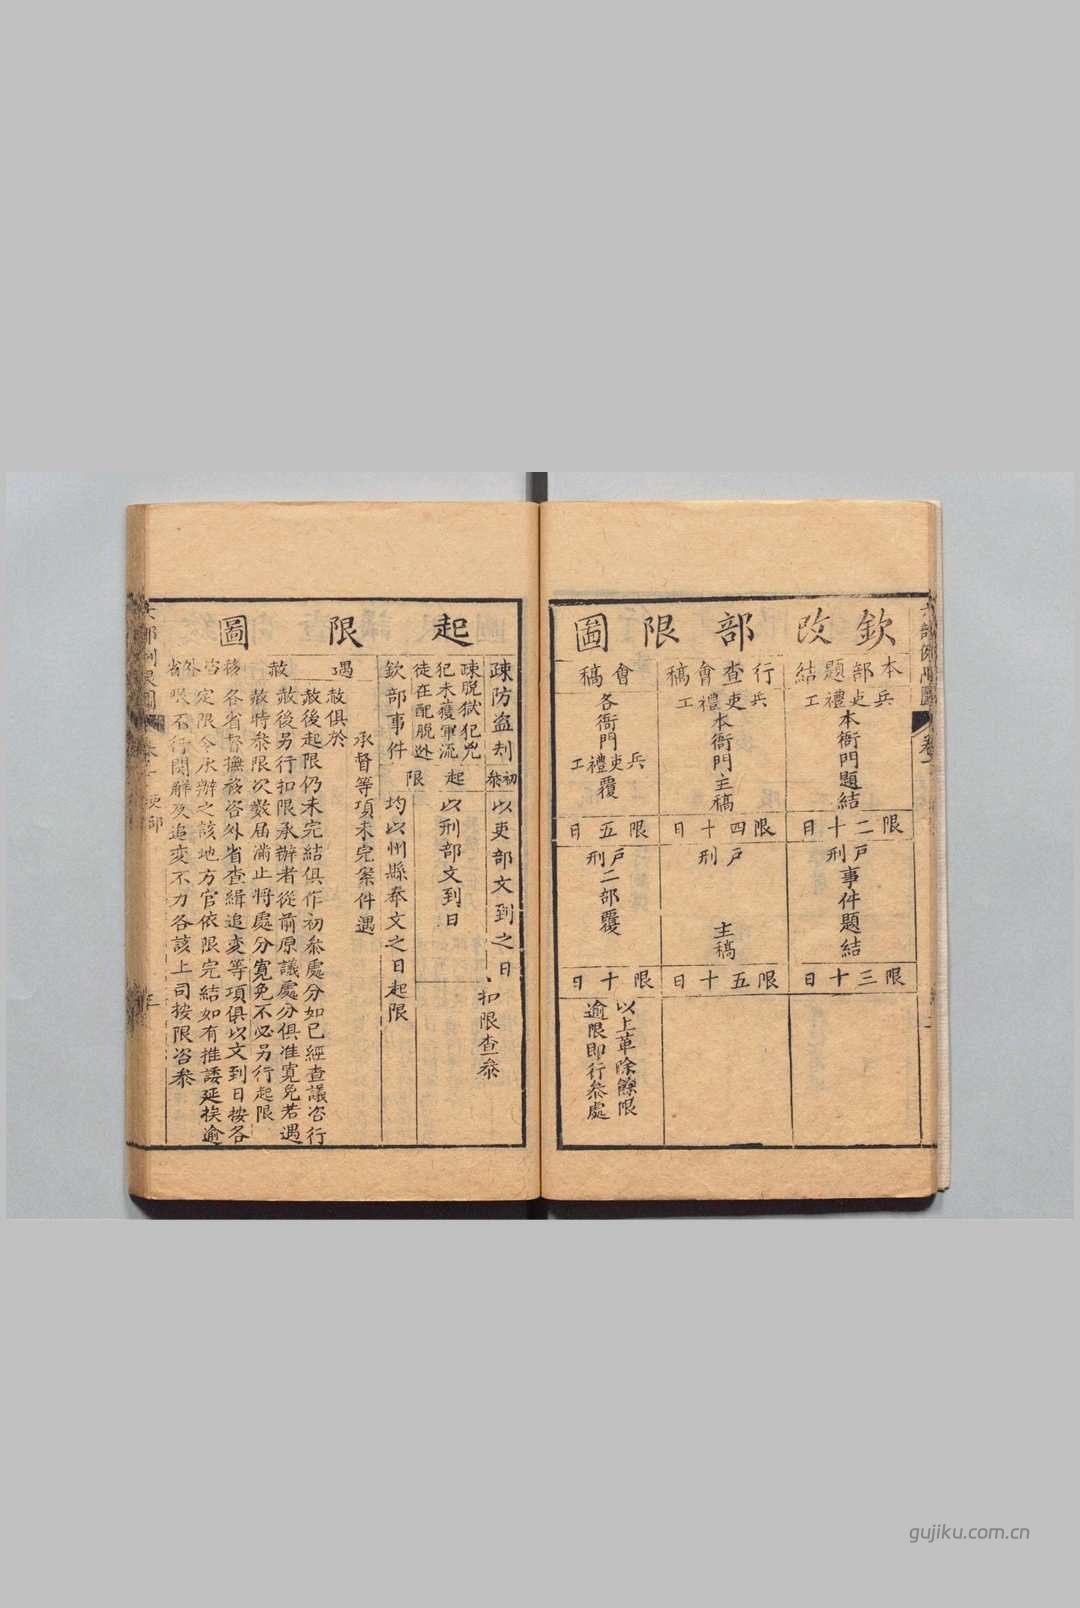 欽改部限圖
本部題結
兵吏禮工
本衙門題結
限二十日
戶刑
事件題結
限三十日
行查會稿
兵吏禮工
本衙門主稿
限四十日
戶刑
主稿
限五十日
會稿
各衙門
兵吏禮工
覆
限五日
戶刑
二部覆
限十日
以上革除餘限
逾限即行叅處
起限圖
疎防盗刼
初叅
以吏部文到之日
扣限查叅
疎脫獄犯兇
犯未獲軍流
徒在配脫逃
起限
以刑部文到日
欽部事件
均以州縣奉文之日起限
承督等項未完案件遇
遇赦
赦俱於
赦後起限仍未完結俱作初叅處分如已經查議咨行
赦後另行扣限承辦者從前原議處分俱准寬免若遇
赦特叅限次數届滿止將處分寬免不必另行起限
移咨外省
各省督撫移咨外省查緝追変等項俱以文到日按各
定限令承辦之該地方官依限完結如有推諉延挨逾
限不行関解及追変不力各該上司按限咨叅
gujiku.com.cn